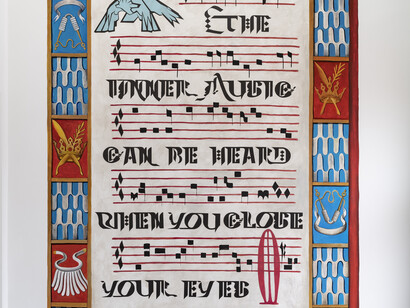 THE
INNER MUSIC
CAN BE HEARD
WHEN YOU CLOSE
YOUR EYES